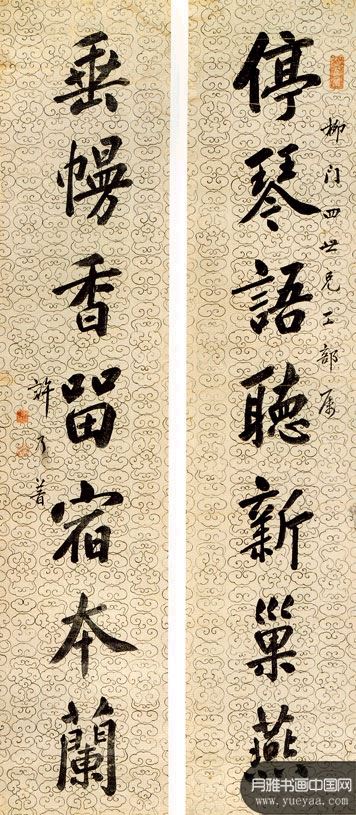 柳门四世兄工部属
停琴語聽新巢燕
垂幔香留宿本蘭
許乃普
月雅书画中国网
www.yueyaa.com